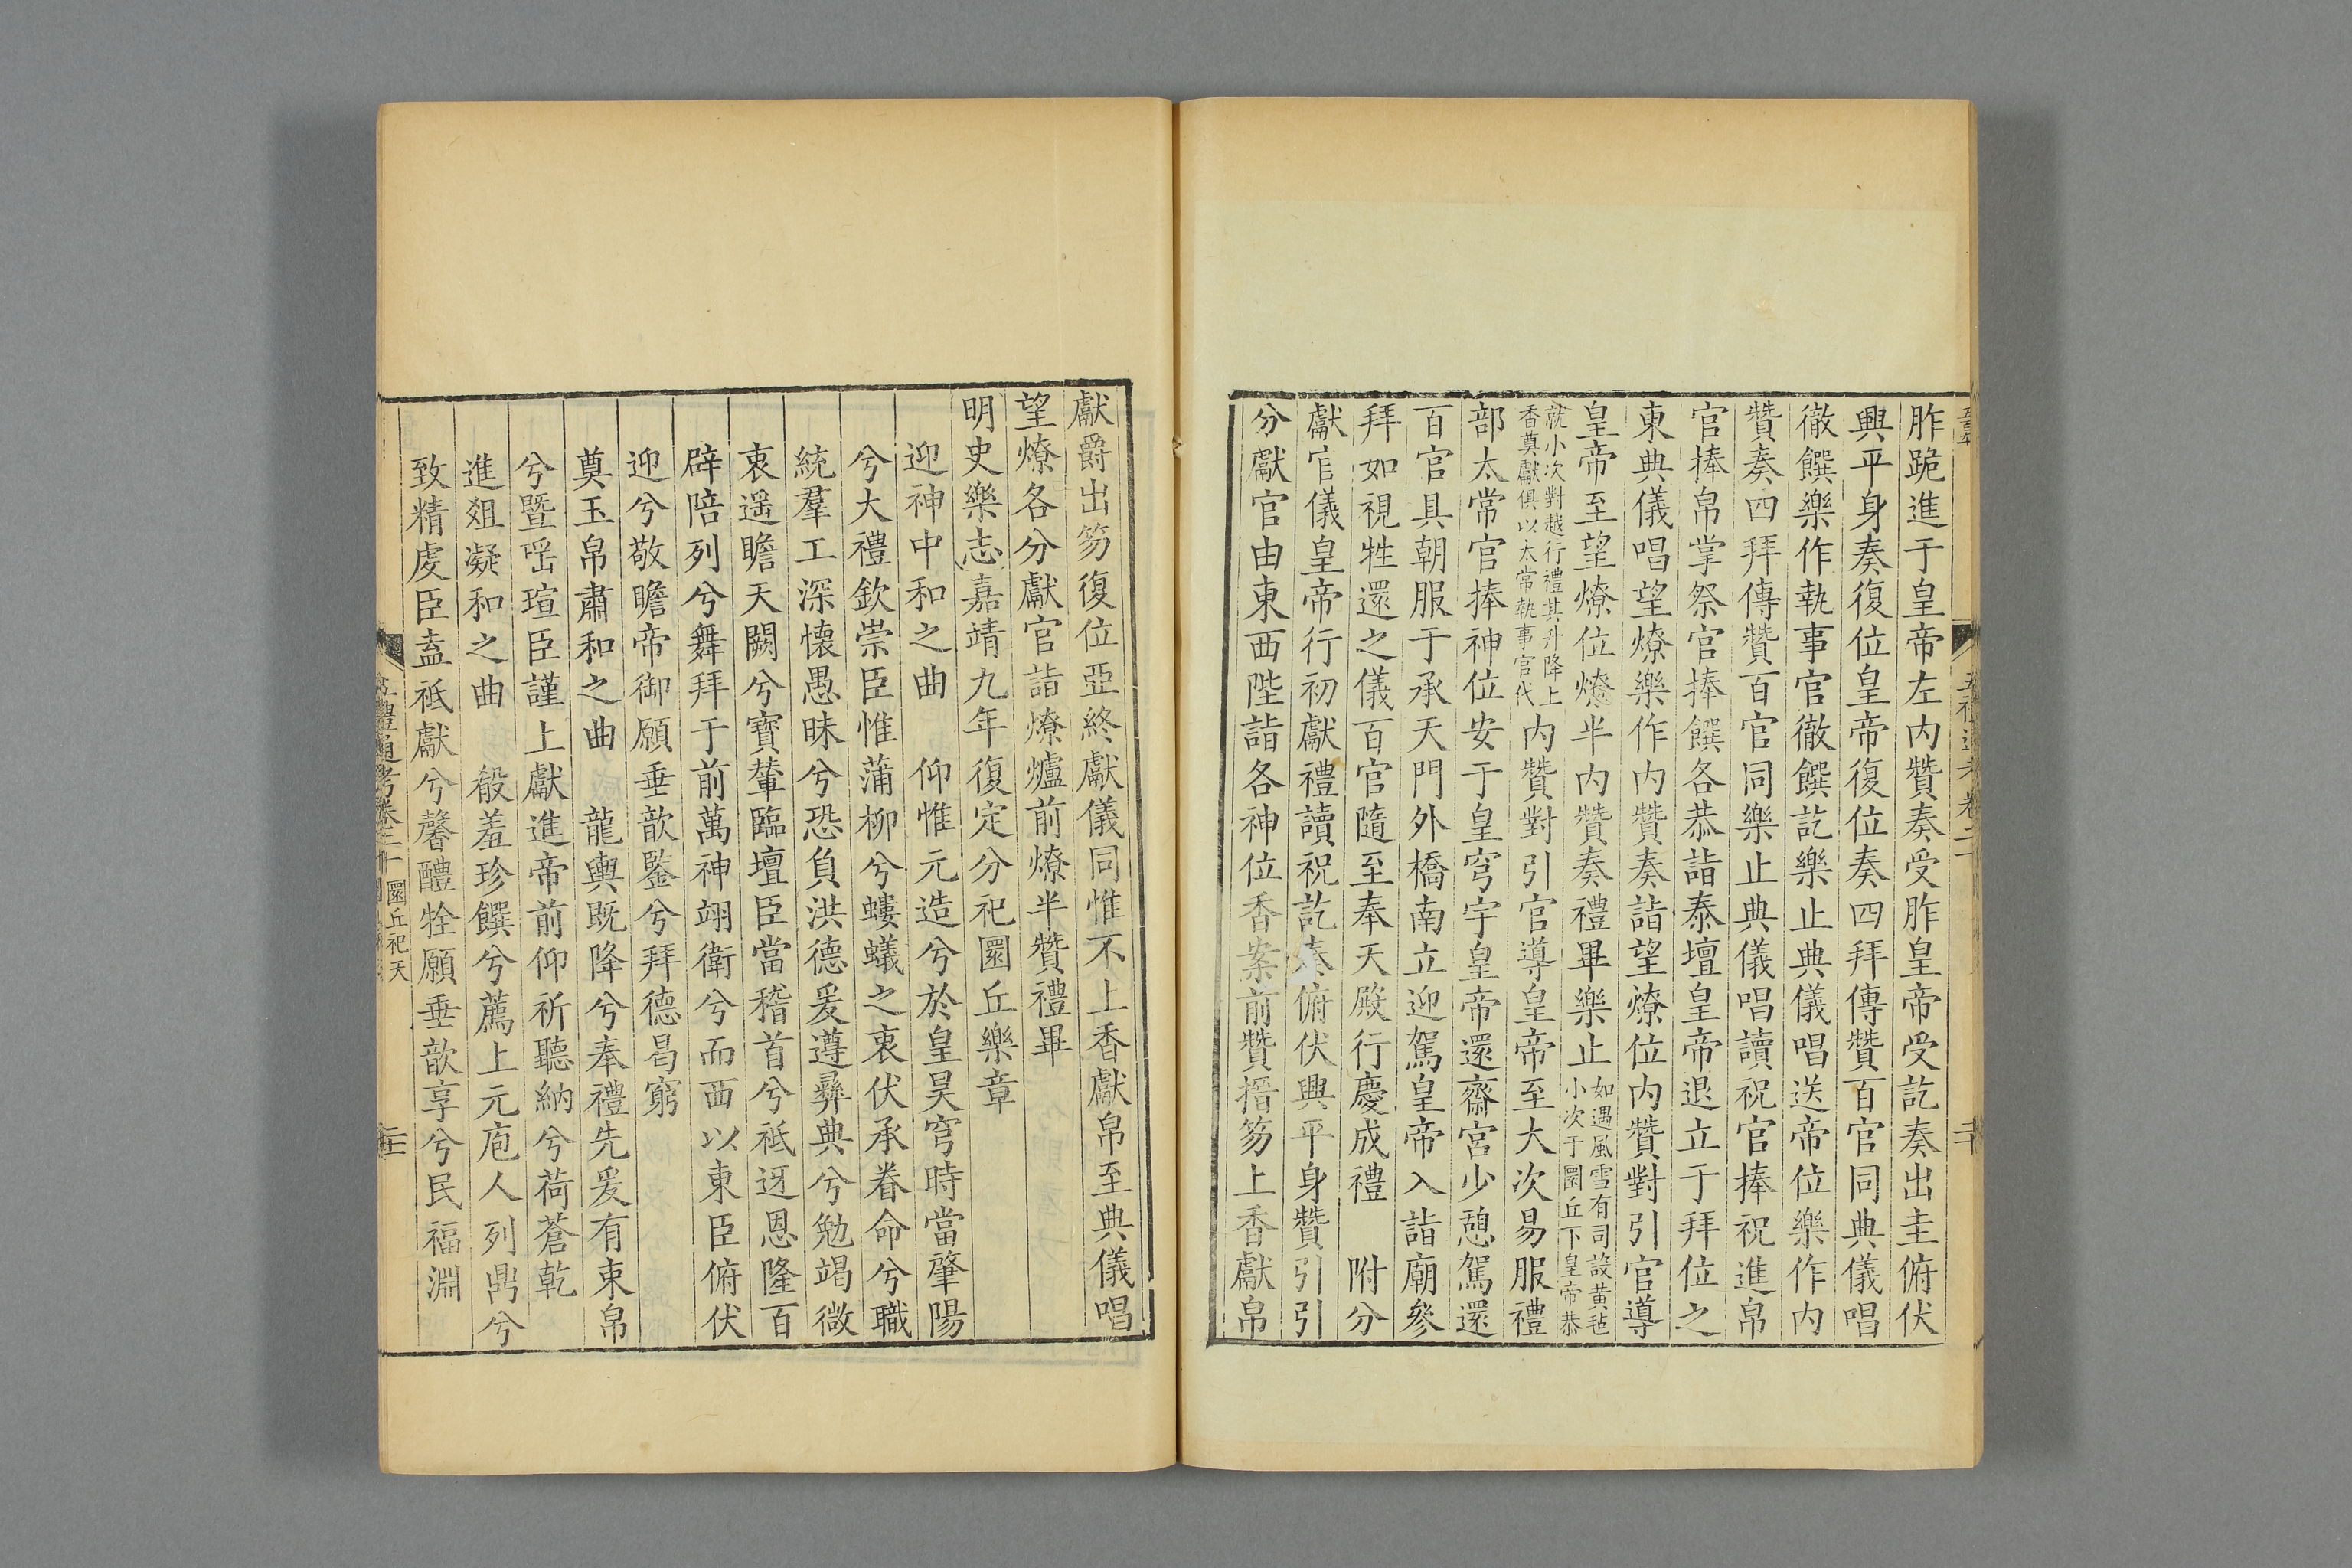 胙跪進于皇帝左内贊奏受胙皇帝受訖奏出圭俯伏
興平身奏復位皇帝復位奏四拜傳贊百官同典儀唱
徹饌樂作執事官徹饌訖樂止典儀唱送帝位樂作内
贊奏四拜傳贊百官同樂止典儀唱讀祝官捧祝進帛
官捧帛掌祭官捧饌各恭詣泰壇皇帝退立于拜位之
東典儀唱望燎樂作内贊奏詣望燎位内贊對引官導
皇帝至望燎位燎半内贊奏禮畢樂止如遇風雪有司設黄毡
小次于圜丘下皇帝恭
就小次對越行禮其升降上
香奠獻俱以太常執事官代内贊對引官導皇帝至大次易服禮
部太常官捧神位安于皇穹宇皇帝還齋宮少憩駕還
百官具朝服于承天門外橋南立迎駕皇帝入詣廟參
拜如視牲還之儀百官隨至奉天殿行慶成禮　附分
獻官儀皇帝行初獻禮讀祝訖奏俯伏興平身贊引引
分獻官由東西陛詣各神位香案前贊搢笏上香獻帛
獻爵出笏復位亞終獻儀同惟不上香獻帛至典儀唱
望燎各分獻官詣燎爐前燎半贊禮畢
明史樂志嘉靖九年復定分祀圜丘樂章
迎神中和之曲　仰惟元造兮於皇昊穹時當肇陽
兮大禮欽崇臣惟蒲柳兮螻蟻之衷伏承眷命兮職
統羣工深懷愚昧兮恐負洪德爰遵彝典兮勉竭微
衷遥瞻天闕兮寶輦臨壇臣當稽首兮祗迓恩隆百
辟陪列兮舞拜于前萬神翊衛兮而西以東臣俯伏
迎兮敬瞻帝御願垂歆鑒兮拜德曷窮
奠玉帛肅和之曲　龍輿既降兮奉禮先爰有束帛
兮暨瑶瑄臣謹上獻進帝前仰祈聽納兮荷蒼乾
進俎凝和之曲　殽羞珍饌兮薦上元庖人列鼎兮
致精虔臣盍祗獻兮馨醴牷願垂歆享兮民福淵
五禮通考卷二十　圜丘祀天